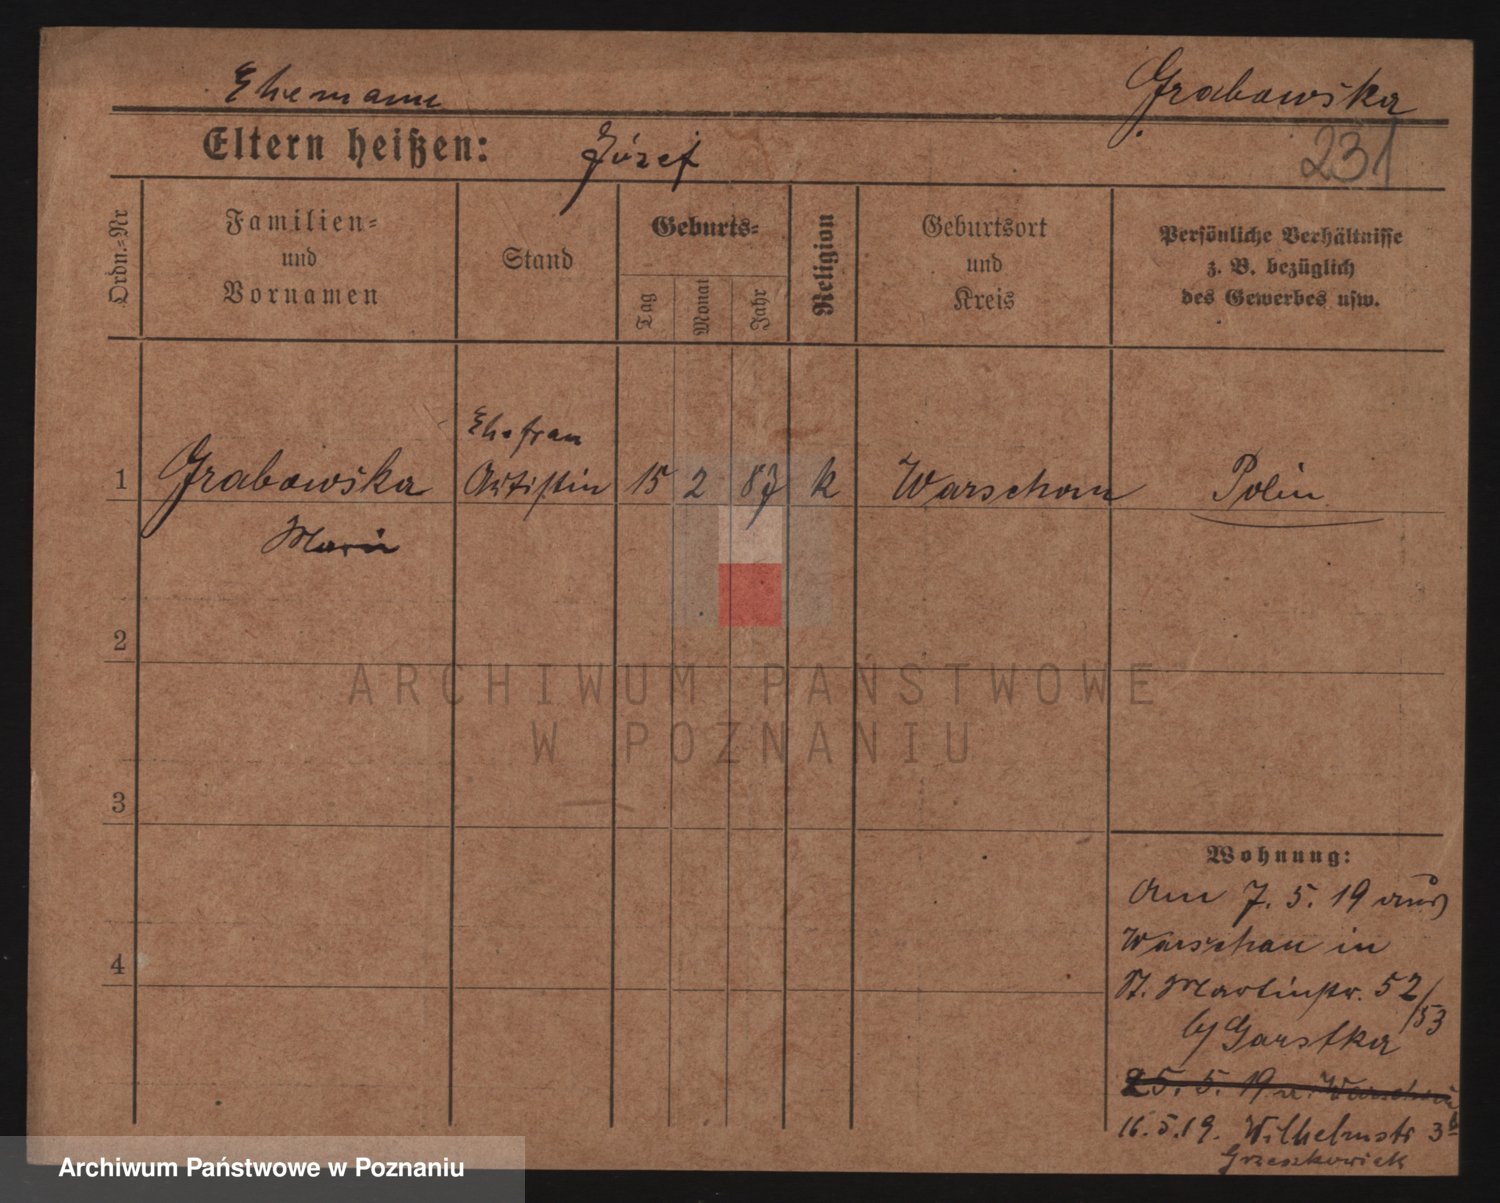 Ehemann
Grabowska
Eltern heißen:
Józef
231
Ordn.=Nr
Familien=
und
Vornamen
Stand
Geburts=
Tag
Monat
Jahr
Religion
Geburtsort
und
Kreis
Persönliche Verhältnisse
z. B. bezüglich
des Gewerbes usw.
Ehefrau
1 Grabowska Artistin 15 2 87 k Warschau Polin
Marie
2
ARCHIWUM PAŃSTWOWE
W POZNANIU
3
4
Wohnung:
Am 7. 5. 19 aus
Warschau in
St. Martinstr. 52/53
b/ Garstka
25. 5. 19 n. Warschau
16. 5. 19. Wilhelmstr 3
Grzeszkowiak
Archiwum Państwowe w Poznaniu